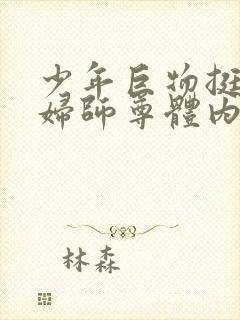 少年巨物挺
婦師尊體內
林森